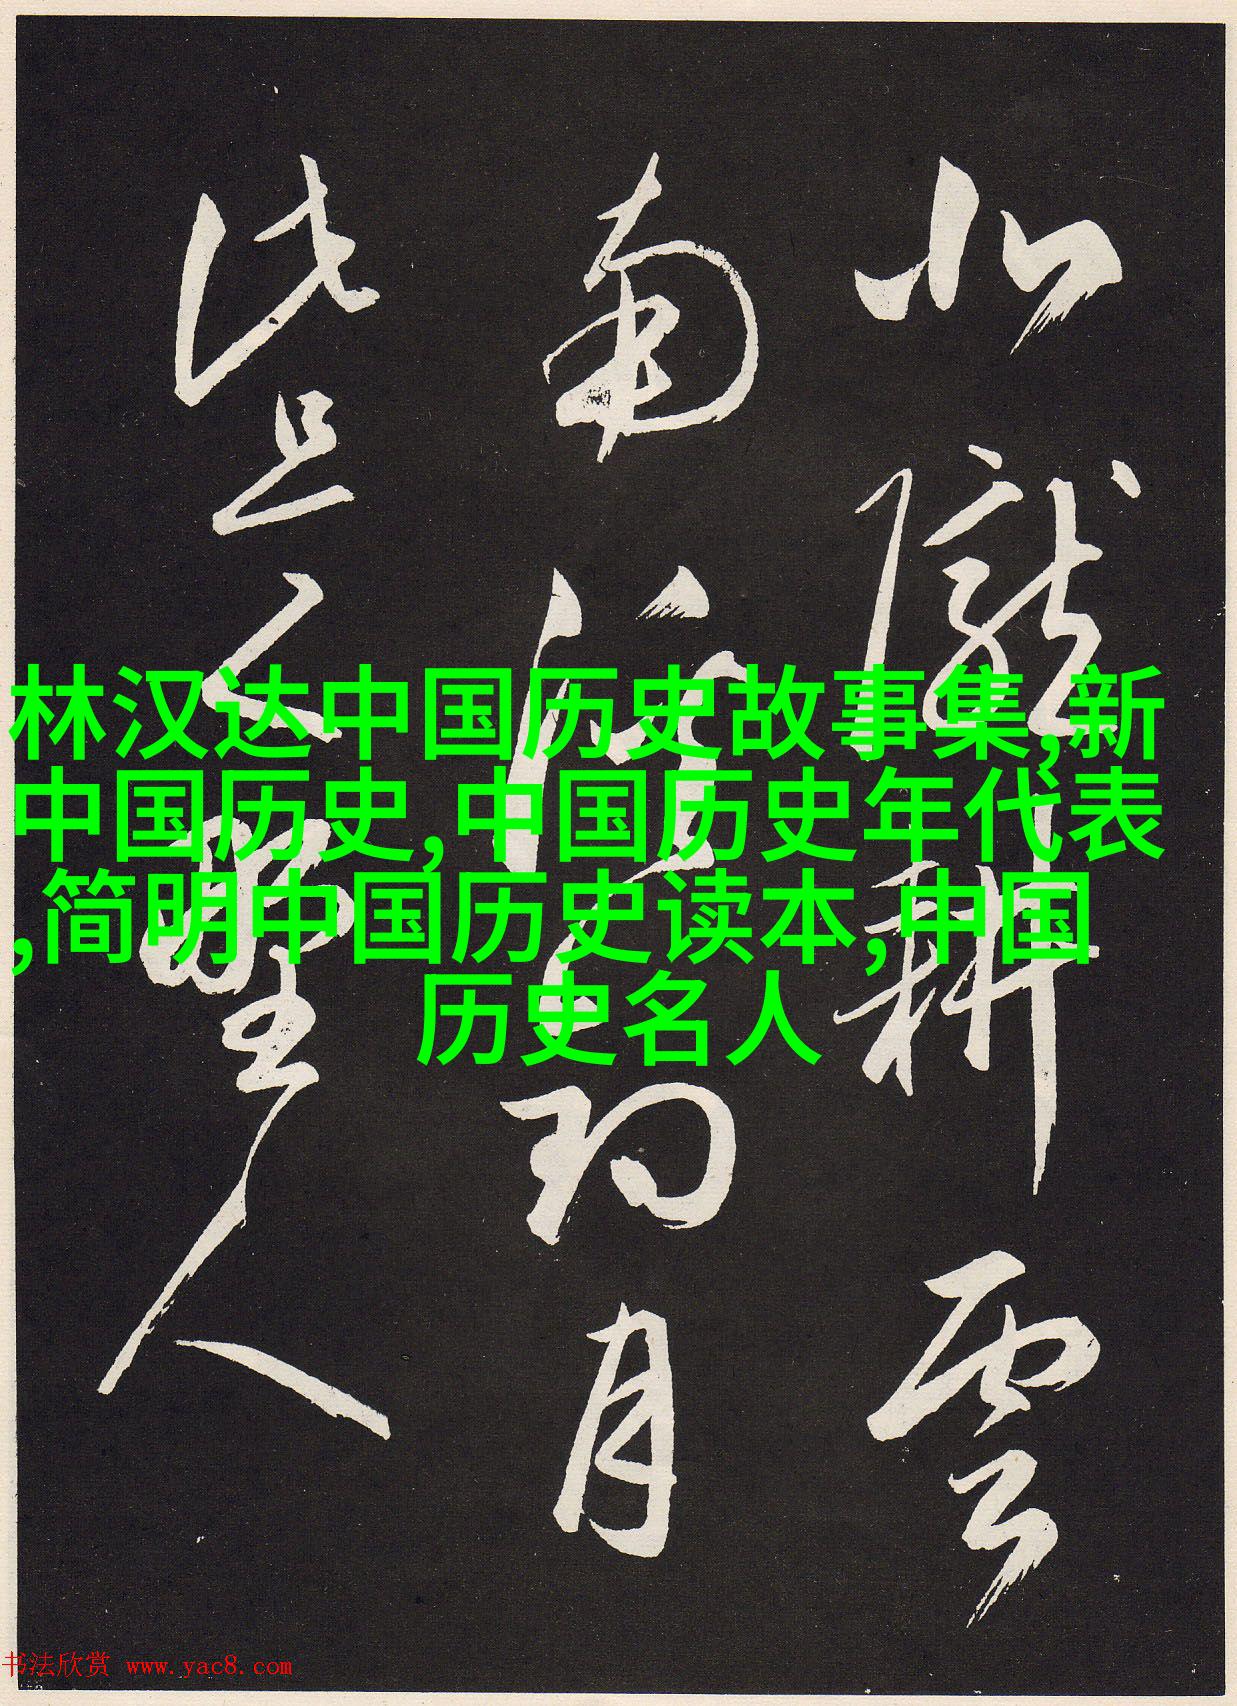 北隴耕雲
南溪釣月
此是野人
林汉达中国历史故事集,新
中国历史,中国历史年代表
,简明中国历史读本,中国
历史名人
书法欣赏 www.yac8.com